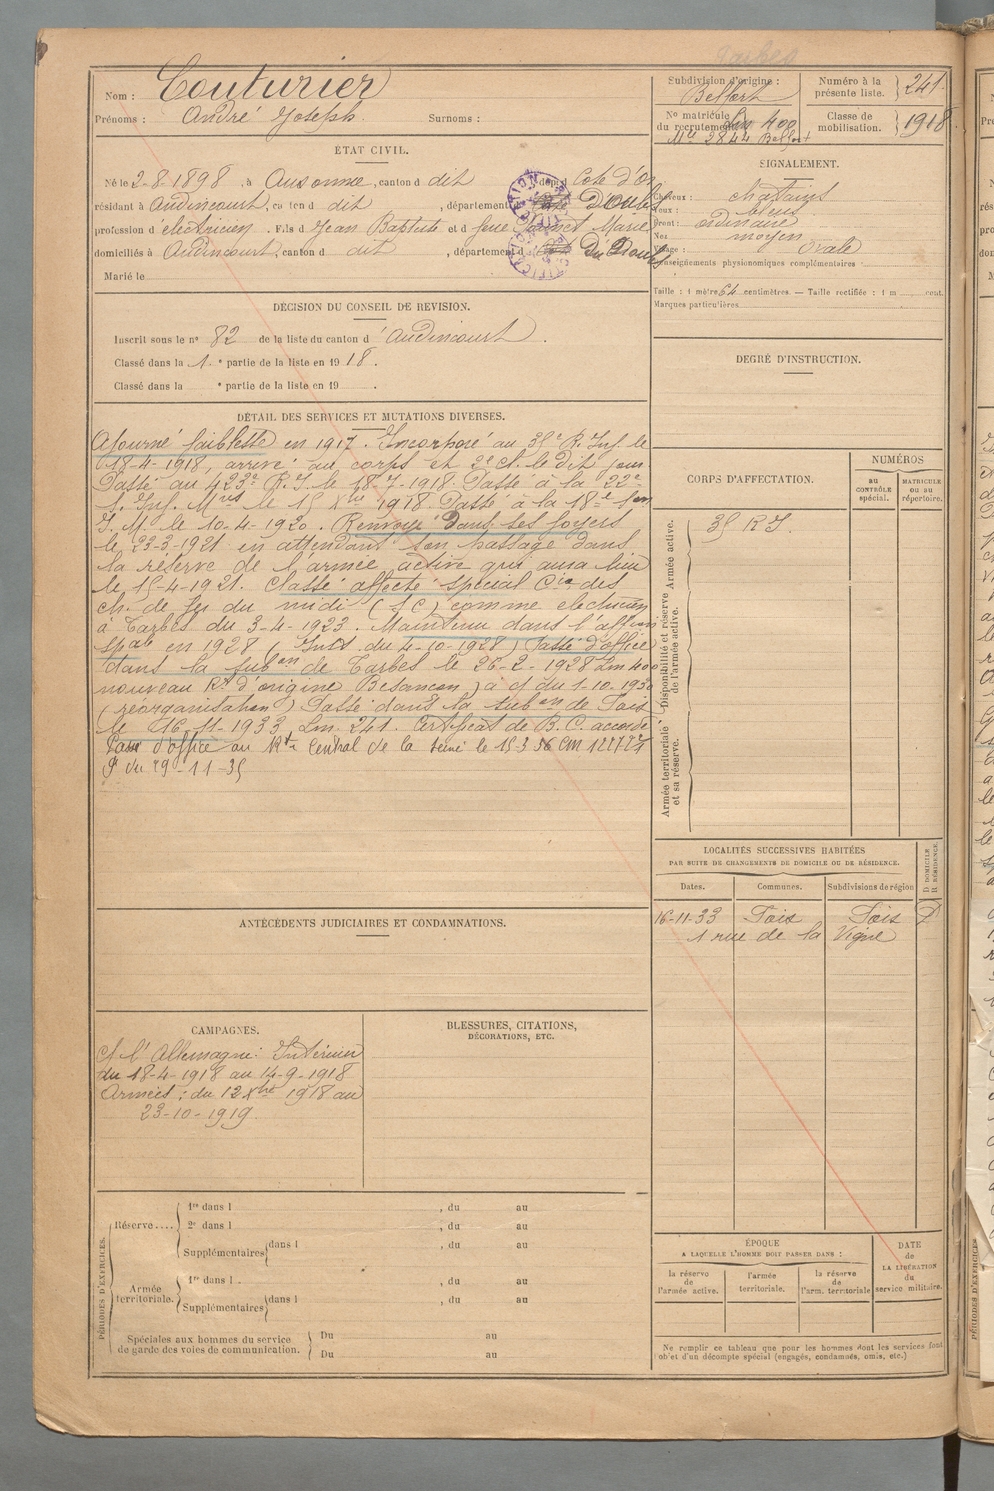 Tarbes
Nom : Couturier
Prénoms : André Joseph Surnoms :
ÉTAT CIVIL.
Né le 2-8-1898, à Auxonne, canton d dit, dépt d Cote d'Or
résidant à Audincourt, canton d dit, département d Doubs
profession d electricien. Fils d Jean Baptiste et d feue Marie
domiciliés à Audincourt, canton d dit, département d du Doubs
Marié le
DÉCISION DU CONSEIL DE REVISION.
Inscrit sous le n° 82 de la liste du canton d'Audincourt.
Classé dans la 1e partie de la liste en 1918.
Classé dans la e partie de la liste en 19 .
DÉTAIL DES SERVICES ET MUTATIONS DIVERSES.
Ajourné faiblesse en 1917. Incorporé au 35e R. Inf. le
18-4-1918, arrivé au corps et 2e cl. le dit jour.
Passé au 423e R.I. le 18-7-1918. Passé à la 22e
S. Inf. Mres le 15 Xbre 1918. Passé à la 18e Son
I. M. le 10-4-1920. Renvoyé dans ses foyers
le 23-3-1921 en attendant son passage dans
la réserve de l'armée active qui aura lieu
le 15-4-1921. Classé affecté spécial Cie des
ch. de fer du midi (S C) comme electricien
à Tarbes du 3-4-1923. Maintenu dans l'affon
spale en 1928 (Inst. du 4-10-1928) Passé d'office
dans la subon de Tarbes le 26-2-1928 Lm 400
nouveau Rt d'origine Besançon) a d du 1-10-1930
(réorganisation) Passé dans la subon de Foix
le 16-11-1933 Lm. 241. Certificat de B.C. accordé
Passé d'office au Rt Central de la Seine le 15 3 36
du 29-11-35
ANTÉCÉDENTS JUDICIAIRES ET CONDAMNATIONS.
CAMPAGNES.
Ct l'Allemagne: Intérieur
du 18-4-1918 au 14-9-1918
Armées : du 12 Xbre 1918 au
23-10-1919.
BLESSURES, CITATIONS,
DÉCORATIONS, ETC.
PÉRIODES D'EXERCICES.
Réserve....
1re dans l , du au
2e dans l , du au
Supplémentaires dans l , du au
Armée territoriale.
1re dans l , du au
Supplémentaires dans l , du au
Spéciales aux hommes du service
de garde des voies de communication.
Du au
Du au
Subdivision d'origine :
Belfort
Numéro à la
présente liste.
241.
No matricule
du recrutement Lm 400
Mle 2844 Belfort
Classe de
mobilisation.
1918
SIGNALEMENT.
Cheveux : chatains
Yeux : bleus
Front : ordinaire
Nez : moyen
Visage : Ovale
Renseignements physionomiques complémentaires
Taille : 1 mètre 64 centimètres. — Taille rectifiée : 1 m cent.
Marques particulières
DEGRÉ D'INSTRUCTION.
CORPS D'AFFECTATION.
NUMÉROS
au
CONTRÔLE
spécial.
MATRICULE
ou au
répertoire.
Armée active.
35 R I.
Disponibilité et réserve
de l'armée active.
Armée territoriale
et sa réserve.
LOCALITÉS SUCCESSIVES HABITÉES
PAR SUITE DE CHANGEMENTS DE DOMICILE OU DE RÉSIDENCE.
D DOMICILE
R RÉSIDENCE.
Dates. Communes. Subdivisions de région
16-11-33 Foix Foix D
1 rue de la Vigne
ÉPOQUE
A LAQUELLE L'HOMME DOIT PASSER DANS :
la réserve
de
l'armée active.
l'armée
territoriale.
la réserve
de
l'arm. territoriale
DATE
de
LA LIBÉRATION
du
service militaire.
Ne remplir ce tableau que pour les hommes dont les services font
l'objet d'un décompte spécial (engagés, condamnés, omis, etc.)